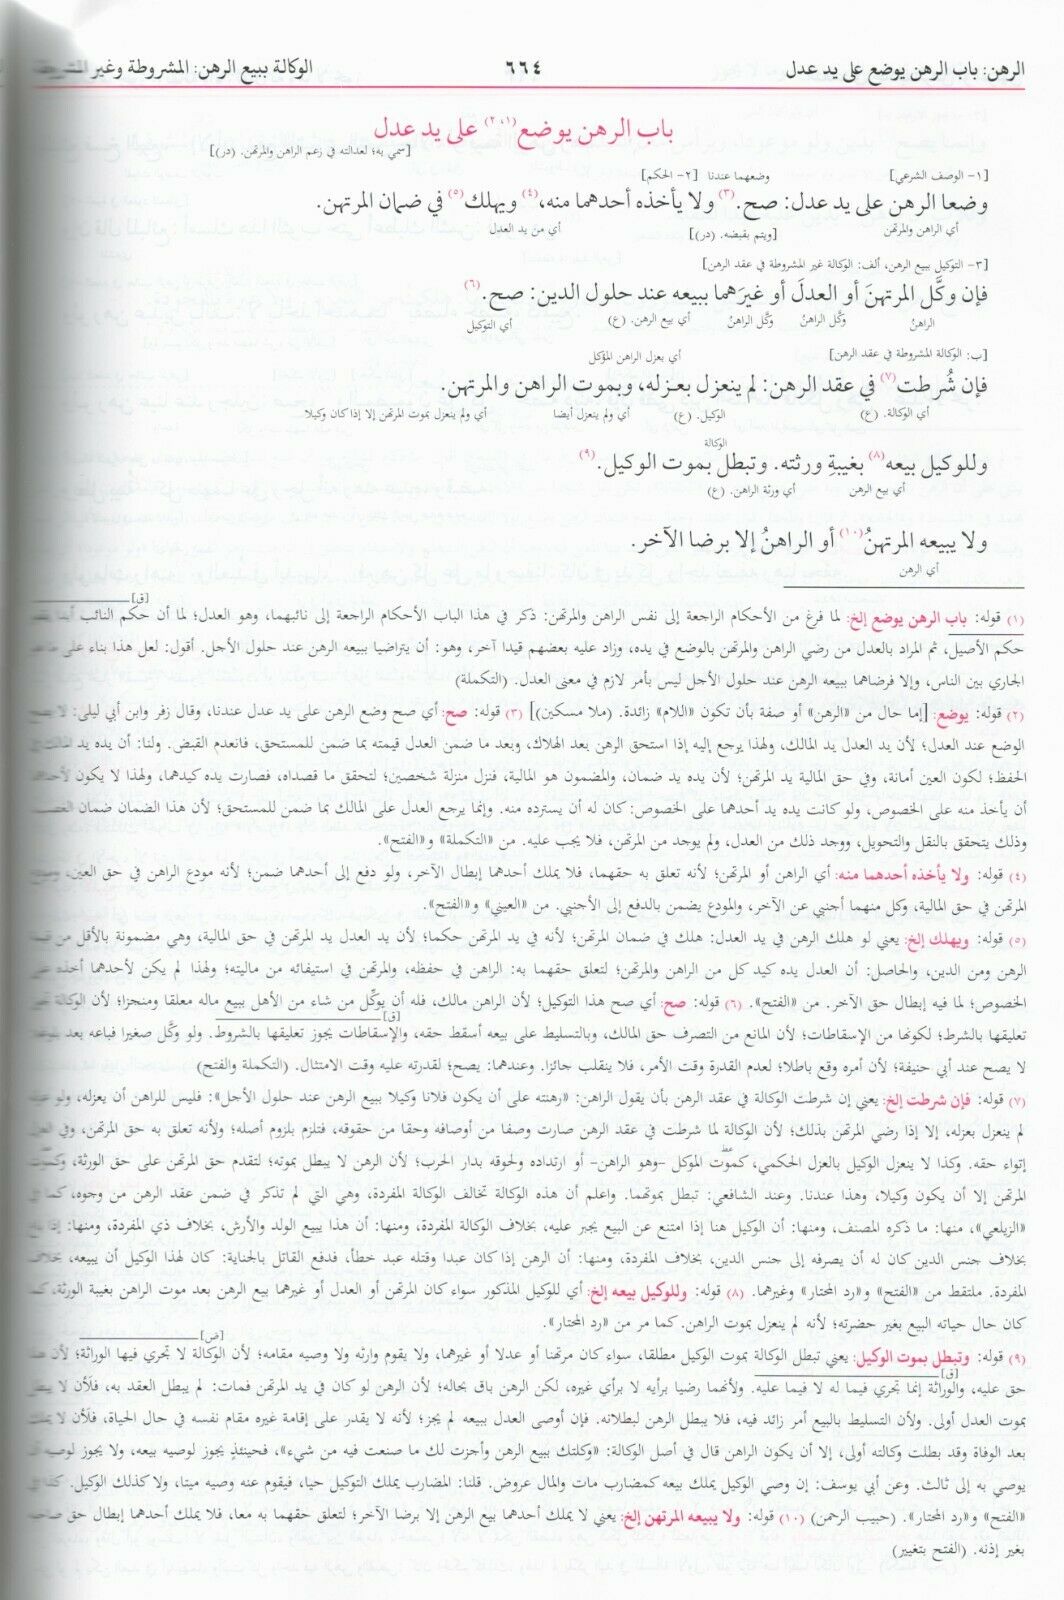 الرهن: باب الرهن يوضع على يد عدل ٦٦٤ الوكالة ببيع الرهن: المشروطة وغير
باب الرهن يوضع(١، ٢) على يد عدل
[سمي به؛ لعدالته في زعم الراهن والمرتهن. (در)]
[١- الوصف الشرعي] وضعهما عندنا [٢- الحكم]
وضعا الرهن على يد عدل: صح.(٣) ولا يأخذه أحدهما منه،(٤) ويهلك(٥) في ضمان المرتهن.
أي الراهن والمرتهن [ويتم بقبضه. (در)] أي من يد العدل
[٣- التوكيل ببيع الرهن، ألف: الوكالة غير المشروطة في عقد الرهن]
فإن وكَّل المرتهنَ أو العدلَ أو غيرَهما ببيعه عند حلول الدين: صح.(٦)
الراهنُ وكّل الراهنُ وكّل الراهنُ أي بيع الرهن. (ع) أي التوكيل
[ب: الوكالة المشروطة في عقد الرهن] أي بعزل الراهن المؤكل
فإن شُرطت(٧) في عقد الرهن: لم ينعزل بعزله، وبموت الراهن والمرتهن.
أي الوكالة. (ع) الوكيل. (ع) أي ولم ينعزل أيضا أي ولم ينعزل بموت المرتهن إلا إذا كان وكيلا
الوكالة
وللوكيل بيعه(٨) بغيبةِ ورثته. وتبطل بموت الوكيل.(٩)
أي بيع الرهن أي ورثة الراهن. (ع)
ولا يبيعه المرتهنُ(١٠) أو الراهنُ إلا برضا الآخر.
أي الرهن
[ق]
(١) قوله: باب الرهن يوضع إلخ: لما فرغ من الأحكام الراجعة إلى نفس الراهن والمرتهن: ذكر في هذا الباب الأحكام الراجعة إلى نائبهما، وهو العدل؛ لما أن حكم النائب أبدا
حكم الأصيل، ثم المراد بالعدل من رضي الراهن والمرتهن بالوضع في يده، وزاد عليه بعضهم قيدا آخر، وهو: أن يتراضيا ببيعه الرهن عند حلول الأجل. أقول: لعل هذا بناء على
الجاري بين الناس، وإلا فرضاهما ببيعه الرهن عند حلول الأجل ليس بأمر لازم في معنى العدل. (التكملة)
(٢) قوله: يوضع: [إما حال من «الرهن» أو صفة بأن تكون «اللام» زائدة. (ملا مسكين)] (٣) قوله: صح: أي صح وضع الرهن على يد عدل عندنا، وقال زفر وابن أبي ليلى: لا يصح
الوضع عند العدل؛ لأن يد العدل يد المالك، ولهذا يرجع إليه إذا استحق الرهن بعد الهلاك، وبعد ما ضمن العدل قيمته بما ضمن للمستحق، فانعدم القبض. ولنا: أن يده يد المالك في
الحفظ؛ لكون العين أمانة، وفي حق المالية يد المرتهن؛ لأن يده يد ضمان، والمضمون هو المالية، فنزل منزلة شخصين؛ لتحقق ما قصداه، فصارت يده كيدهما، ولهذا لا يكون لأحدهما
أن يأخذ منه على الخصوص، ولو كانت يده يد أحدهما على الخصوص: كان له أن يسترده منه. وإنما يرجع العدل على المالك بما ضمن للمستحق؛ لأن هذا الضمان ضمان الغصب
وذلك يتحقق بالنقل والتحويل، ووجد ذلك من العدل، ولم يوجد من المرتهن، فلا يجب عليه. من «التكملة» و«الفتح».
(٤) قوله: ولا يأخذه أحدهما منه: أي الراهن أو المرتهن؛ لأنه تعلق به حقهما، فلا يملك أحدهما إبطال الآخر، ولو دفع إلى أحدهما ضمن؛ لأنه مودع الراهن في حق العين،
المرتهن في حق المالية، وكل منهما أجنبي عن الآخر، والمودع يضمن بالدفع إلى الأجنبي. من «العيني» و«الفتح».
(٥) قوله: ويهلك إلخ: يعني لو هلك الرهن في يد العدل: هلك في ضمان المرتهن؛ لأنه في يد المرتهن حكما؛ لأن يد العدل يد المرتهن في حق المالية، وهي مضمونة بالأقل من قيمة
الرهن ومن الدين، والحاصل: أن العدل يده كيد كل من الراهن والمرتهن؛ لتعلق حقهما به: الراهن في حفظه، والمرتهن في استيفائه من ماليته؛ ولهذا لم يكن لأحدهما أخذه على
الخصوص؛ لما فيه إبطال حق الآخر. من «الفتح». (٦) قوله: صح: أي صح هذا التوكيل؛ لأن الراهن مالك، فله أن يوكّل من شاء من الأهل ببيع ماله معلقا ومنجزا؛ لأن الوكالة يجوز
[ق]
تعليقها بالشرط؛ لكونها من الإسقاطات؛ لأن المانع من التصرف حق المالك، وبالتسليط على بيعه أسقط حقه، والإسقاطات يجوز تعليقها بالشروط. ولو وكَّل صغيرا فباعه بعد بلوغه
لا يصح عند أبي حنيفة؛ لأن أمره وقع باطلا؛ لعدم القدرة وقت الأمر، فلا ينقلب جائزا. وعندهما: يصح؛ لقدرته عليه وقت الامتثال. (التكملة والفتح)
(٧) قوله: فإن شرطت إلخ: يعني إن شرطت الوكالة في عقد الرهن بأن يقول الراهن: «رهنته على أن يكون فلانا وكيلا ببيع الرهن عند حلول الأجل»: فليس للراهن أن يعزله، ولو عزله
لم ينعزل بعزله، إلا إذا رضي المرتهن بذلك؛ لأن الوكالة لما شرطت في عقد الرهن صارت وصفا من أوصافه وحقا من حقوقه، فتلزم بلزوم أصله؛ ولأنه تعلق به حق المرتهن، وفي العزل
إتواء حقه. وكذا لا ينعزل الوكيل بالعزل الحكمي، كموت الموكل -وهو الراهن- أو ارتداده ولحوقه بدار الحرب؛ لأن الرهن لا يبطل بموته؛ لتقدم حق المرتهن على حق الورثة، وكموت
المرتهن إلا أن يكون وكيلا، وهذا عندنا. وعند الشافعي: تبطل بموتهما. واعلم أن هذه الوكالة تخالف الوكالة المفردة، وهي التي لم تذكر في ضمن عقد الرهن من وجوه، كما في
«الزيلعي»، منها: ما ذكره المصنف، ومنها: أن الوكيل هنا إذا امتنع عن البيع يجبر عليه، بخلاف الوكالة المفردة، ومنها: أن هذا يبيع الولد والأرش، بخلاف ذي المفردة، ومنها: إذا باع
بخلاف جنس الدين كان له أن يصرفه إلى جنس الدين، بخلاف المفردة، ومنها: أن الرهن إذا كان عبدا وقتله عبد خطأ، فدفع القاتل بالجناية: كان لهذا الوكيل أن يبيعه، بخلاف
المفردة. ملتقط من «الفتح» و«رد المحتار» وغيرهما. (٨) قوله: وللوكيل بيعه إلخ: أي للوكيل المذكور سواء كان المرتهن أو العدل أو غيرهما بيع الرهن بعد موت الراهن بغيبة الورثة، كما
كان حال حياته البيع بغير حضرته؛ لأنه لم ينعزل بموت الراهن. كما مر من «رد المحتار».
[ص]
(٩) قوله: وتبطل بموت الوكيل: يعني تبطل الوكالة بموت الوكيل مطلقا، سواء كان مرتهنا أو عدلا أو غيرهما، ولا يقوم وارثه ولا وصيه مقامه؛ لأن الوكالة لا تجري فيها الوراثة؛ لأن
[ق]
حق عليه، والوراثة إنما تجري فيما له لا فيما عليه. ولأنهما رضيا برأيه لا برأي غيره، لكن الرهن باق بحاله؛ لأن الرهن لو كان في يد المرتهن فمات: لم يبطل العقد به، فلأن لا يبطل
بموت العدل أولى. ولأن التسليط بالبيع أمر زائد فيه، فلا يبطل الرهن لبطلانه. فإن أوصى العدل ببيعه لم يجز؛ لأنه لا يقدر على إقامة غيره مقام نفسه في حال الحياة، فلأن لا يملك
بعد الوفاة وقد بطلت وكالته أولى، إلا أن يكون الراهن قال في أصل الوكالة: «وكلتك ببيع الرهن وأجزت لك ما صنعت فيه من شيء»، فحينئذٍ يجوز لوصيه بيعه، ولا يجوز لوصيه أن
يوصي به إلى ثالث. وعن أبي يوسف: إن وصي الوكيل يملك بيعه كمضارب مات والمال عروض. قلنا: المضارب يملك التوكيل حيا، فيقوم عنه وصيه ميتا، ولا كذلك الوكيل. كذا في
«الفتح» و«رد المحتار». (حبيب الرحمن) (١٠) قوله: ولا يبيعه المرتهن إلخ: يعني لا يملك أحدهما بيع الرهن إلا برضا الآخر؛ لتعلق حقهما به معا، فلا يملك أحدهما إبطال حق صاحبه
بغير إذنه. (الفتح بتغيير)